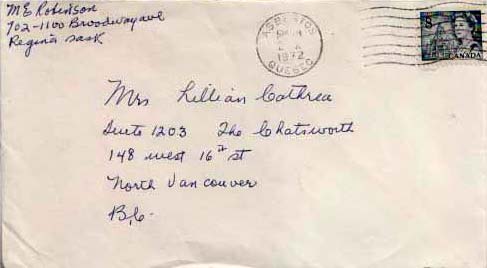 M E Robinson
702-1100 Broadway ave
Regina Sask
ASBESTOS
PM
1972
QUEBEC
8
CANADA
Mrs Lillian Cathrea
Suite 1203 The Chatsworth
148 west 16th st
North Vancouver
B.C.